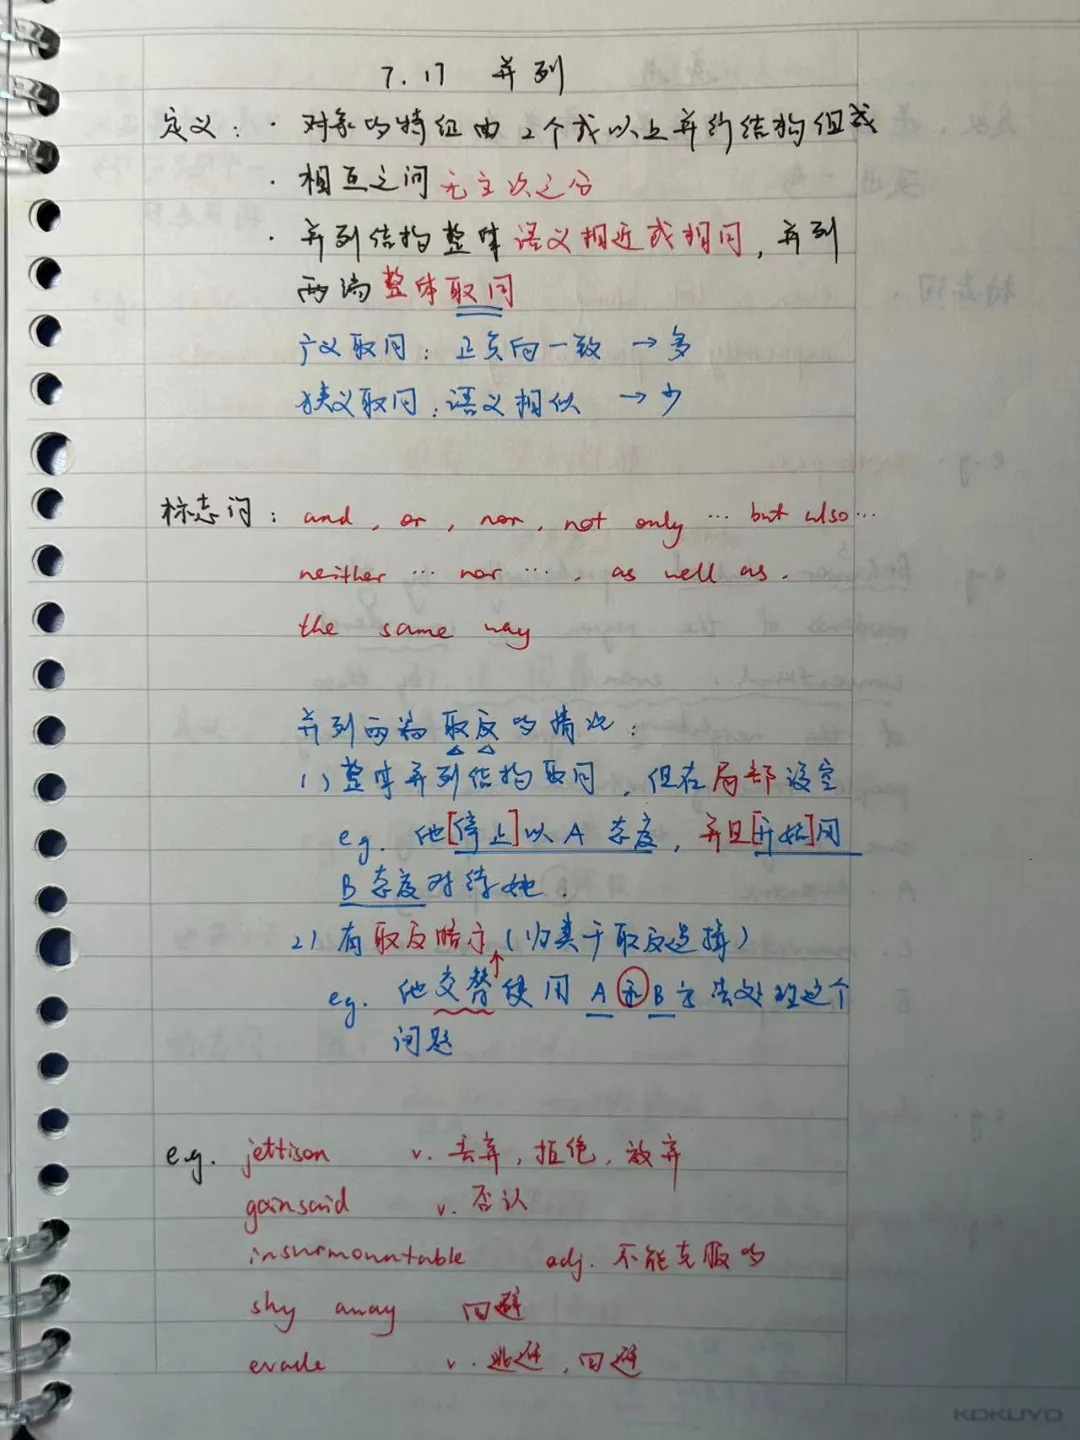 7.17 并列
定义：· 对象的特征由2个或以上并列结构组成
· 相互之间无主次之分
· 并列结构整体语义相近或相同，并列
两端整体取同
广义取同：正负向一致 → 多
狭义取同：语义相似 → 少
标志词：and, or, nor, not only … but also …
neither … nor …, as well as,
the same way
并列两端取反的情况：
1) 整体并列结构取同，但在局部设空
eg. 他[停止]以A态度，并且[开始]用
B态度对待她.
2) 有取反暗示（归类于取反选择）
eg. 他交替使用A和B方法处理这个
问题
e.g. jettison v. 丢弃，拒绝，放弃
gainsaid v. 否认
insurmountable adj. 不能克服的
shy away 回避
evade v. 逃避，回避
KOKUYO